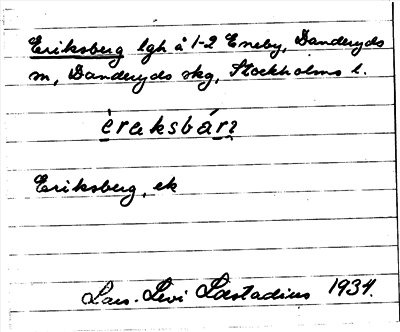 Eriksberg lgh å 1-2 Eneby, Danderyds
sn, Danderyds skg, Stockholms l.
èraksbárɪ
Eriksberg, ek
Lars-Levi Læstadius 1934.